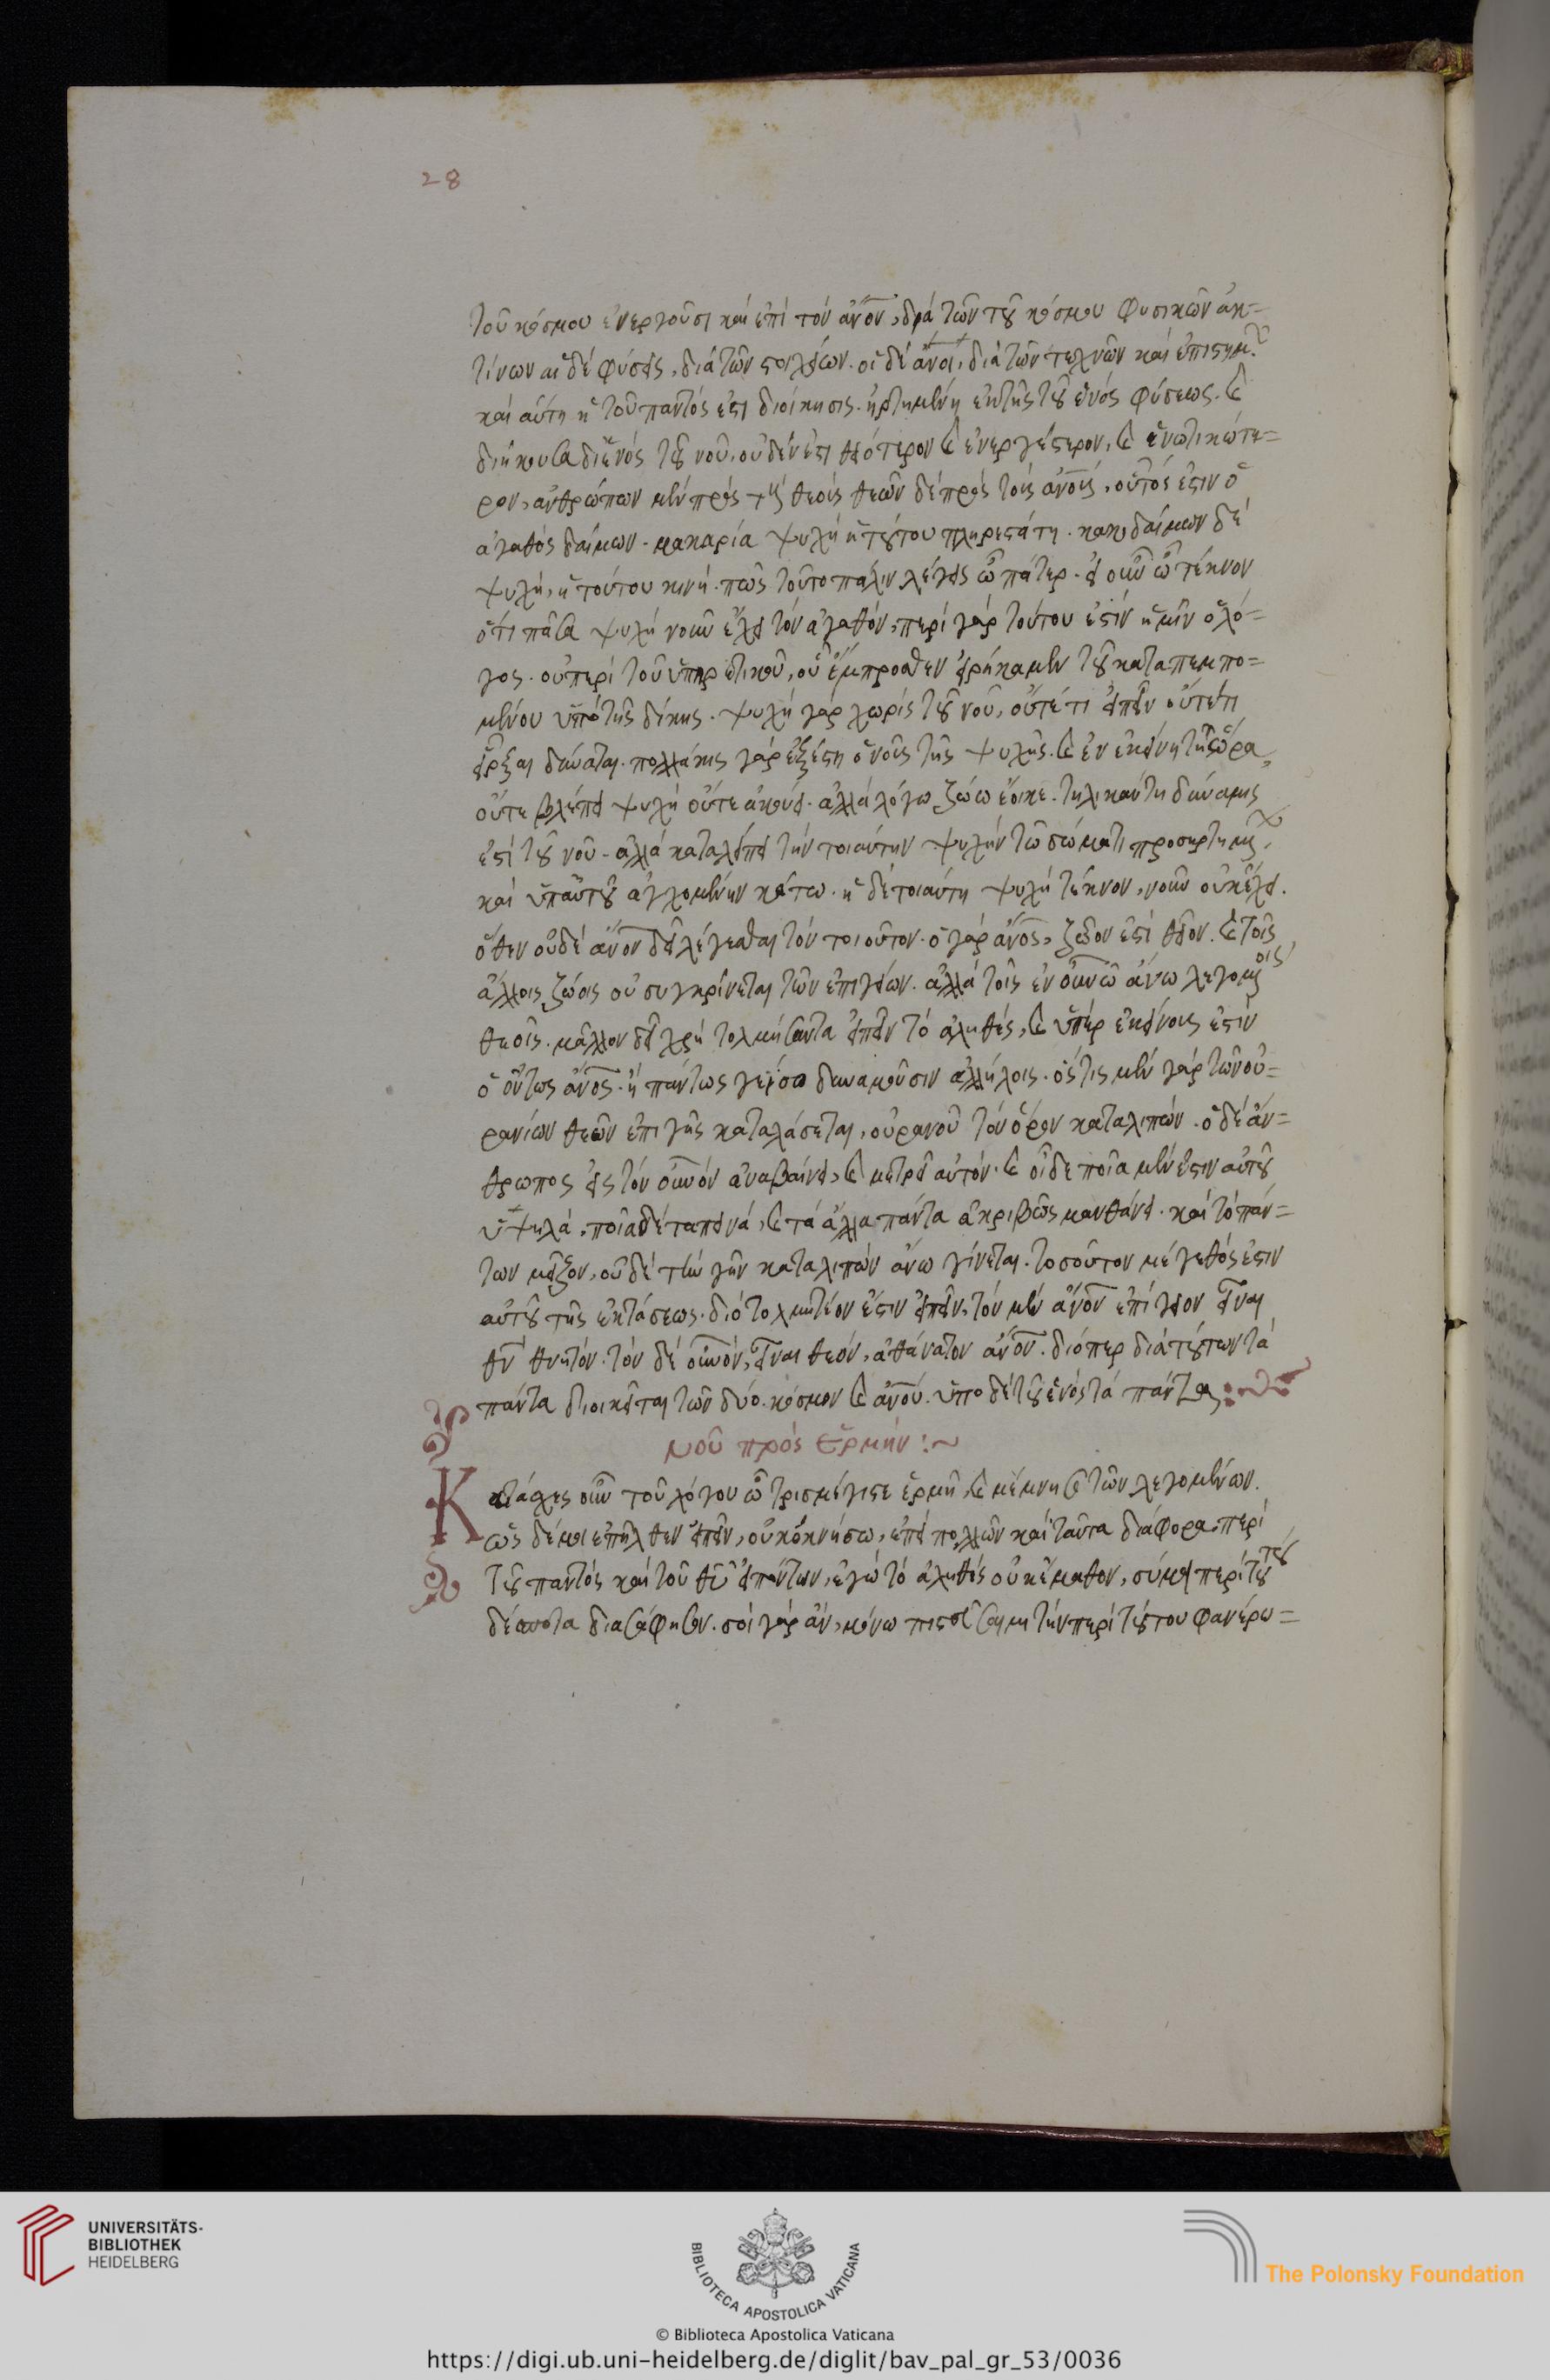 28
τοῦ κόσμου ἐνεργοῦσι καὶ ἐπὶ τὸν ἄνον, διὰ τῶν τοῦ κόσμου φυσικῶν ἀκ=
τίνων αἱ δὲ φύσεις, διὰ τῶν στοιχείων. οἱ δὲ ἄνοι, διὰ τῶν τεχνῶν καὶ ἐπιστημ.
καὶ αὕτη ἡ τοῦ παντός ἐστι διοίκησις. ἠρτημένη ἐκ τῆς τοῦ ἑνός φύσεως. καὶ
διήκουσα δι ἑνός τοῦ νοῦ, οὗ οὐδέν ἐστι θειότερον καὶ ἐνεργέστερον, καὶ ἑνωτικώτε=
ρον, ἀνθρώπων μὲν πρός τοὺς θεοίς θεῶν δὲ πρός τοὺς ἀνοίς, οὗτός ἐστιν ὁ
ἀγαθός δαίμων. μακαρία ψυχὴ ἡ τούτου πληρεστάτη. κακοδαίμων δὲ
ψυχή, ἡ τούτου κενή. πῶς τοῦτο πάλιν λέγεις ὦ πάτερ. εἰ οὖν ὦ τέκνον
ὅτι πᾶσα ψυχὴ νοῦν ἔχει τὸν ἀγαθόν, περὶ γὰρ τούτου ἐστὶν ἡμῖν ὁ λό=
γος. οὐ περὶ τοῦ ὑπηρετικοῦ, οὗ ἔμπροσθεν εἰρήκαμεν τοῦ καταπεμπο=
μένου ὑπὸ τῆς δίκης. ψυχὴ γὰρ χωρὶς τοῦ νοῦ, οὔτέ τι εἰπεῖν οὔτέ τι
ἔρξαι δύναται. πολλάκις γὰρ ἐξέστη ὁ νοῦς τῆς ψυχῆς. καὶ ἐν ἐκείνη τῆ ὥρα,
οὔτε βλέπει ψυχὴ οὔτε ἀκούει. ἀλλὰ λόγω ζώω ἔοικε. τηλικαύτη δύναμις
ἐστὶ τοῦ νοῦ. ἀλλὰ καταλείπει τὴν τοιαύτην ψυχὴν τῶ σώματι προσηρτημ.
καὶ ὑπ αὐτοῦ ἀγχομένην κάτω. ἡ δὲ τοιαύτη ψυχὴ τέκνον, νοῦν οὐκ ἔχει.
ὅθεν οὐδὲ ἄνον δεῖ λέγεσθαι τὸν τοιοῦτον. ὁ γὰρ ἄνος, ζῶον ἐστὶ θεῖον. καὶ τοῖς
ἄλλοις ζώοις οὐ συγκρίνεται τῶν ἐπιγείων. ἀλλὰ τοῖς ἐν οὐνῶ ἄνω λεγομοις
θεοῖς. μᾶλλον δὲ εἰ χρὴ τολμήσαντα εἰπεῖν τὸ ἀληθές, καὶ ὑπὲρ ἐκείνους ἐστὶν
ὁ ὄντως ἄνος. ἢ πάντως γε ἴσο δυναμοῦσιν ἀλλήλοις. ὅστις μὲν γὰρ τῶν οὐ=
ρανίων θεῶν ἐπὶ γῆς καταλάσεται, οὐρανοῦ τὸν ὅρον καταλιπών. ὁ δὲ ἄν=
θρωπος εἰς τὸν οὐνόν ἀναβαίνει, καὶ μετρεῖ αὐτόν. καὶ οἶδε ποῖα μέν ἐστιν αὐτοῦ
ὑψηλά, ποῖα δὲ ταπεινά, καὶ τὰ ἄλλα πάντα ἀκριβῶς μανθάνει. καὶ τὸ πάν=
των μεῖζον, οὐδὲ τὴν γῆν καταλιπὼν ἄνω γίνεται. τοσοῦτον μέγεθός ἐστιν
αὐτοῦ τῆς ἐκτάσεως. διὸ τολμητέον ἐστὶν εἰπεῖν, τὸν μὲν ἄνον ἐπίγειον εἶναι
θν θνητόν. τὸν δὲ οὐνόν, εἶναι θεόν, ἀθάνατον ἄνον. διόπερ διὰ τούτων τὰ
πάντα διοικεῖται τῶν δύο. κόσμου καὶ ἀνου. ὑπὸ δὲ τοῦ ἑνός τὰ πάντα :~
Νοῦ πρός Ἑρμῆν :~
Κατάσχες οὖν τοῦ λόγου ὦ τρισμέγιστε ἑρμῆ, καὶ μέμνησο τῶν λεγομένων.
ὡς δέ μοι ἐπῆλθεν εἰπεῖν, οὐκ ὀκνήσω, ἐπεὶ πολλῶν καὶ ταῦτα διάφορα, περὶ
τοῦ παντός καὶ τοῦ θῦ εἰπόντων, ἐγὼ τὸ ἀληθές οὐκ ἔμαθον, σύ μοι περὶ τούτου
δέσποτα διασάφησον. σοὶ γὰρ ἄν, μόνω πιστεύσαιμι τὴν περὶ τούτου φανέρω=
UNIVERSITÄTS-
BIBLIOTHEK
HEIDELBERG
BIBLIOTECA APOSTOLICA VATICANA
The Polonsky Foundation
© Biblioteca Apostolica Vaticana
https://digi.ub.uni-heidelberg.de/diglit/bav_pal_gr_53/0036